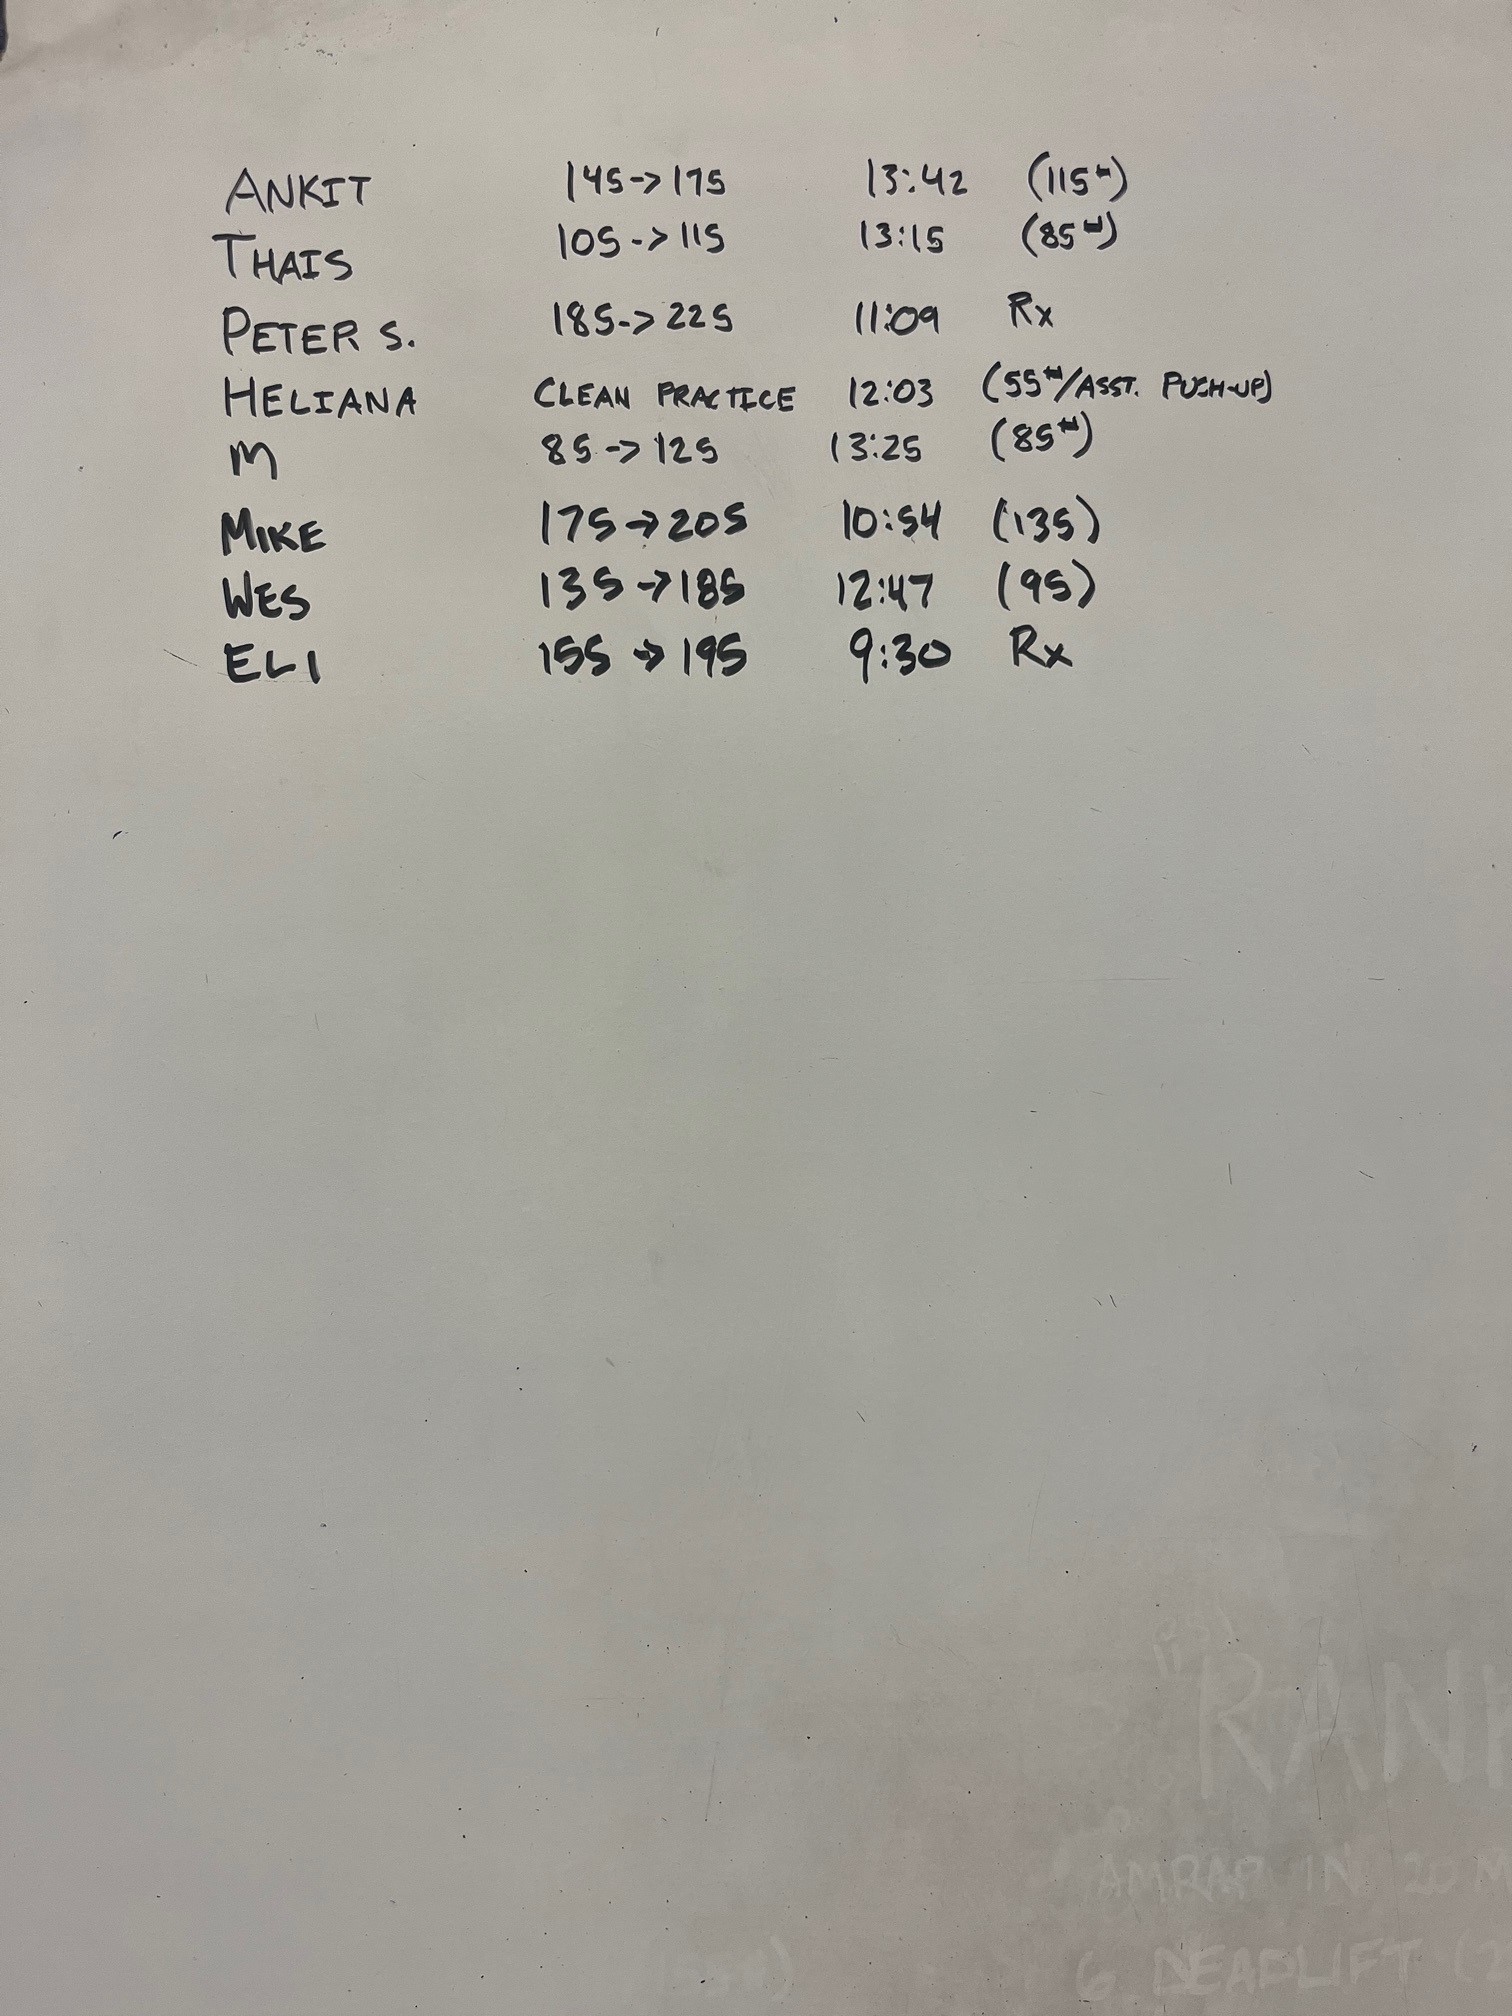 ANKIT 145->175 13:42 (115#)
THAIS 105->115 13:15 (85#)
PETER S. 185->225 11:09 Rx
HELIANA CLEAN PRACTICE 12:03 (55#/ASST. PUSH-UP)
M 85->125 13:25 (85#)
MIKE 175->205 10:54 (135)
WES 135->185 12:47 (95)
ELI 155->195 9:30 Rx
AMRAP IN 20 M
6 DEADLIFT (2